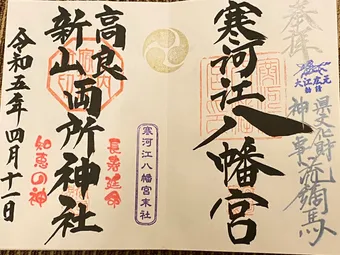 奉拝
大江広元
県文化財
神事 流鏑馬
寒河江八幡宮
寒河江八幡宮末社
長寿延命
高良
新山 両所神社
知恵の神
令和五年四月十一日